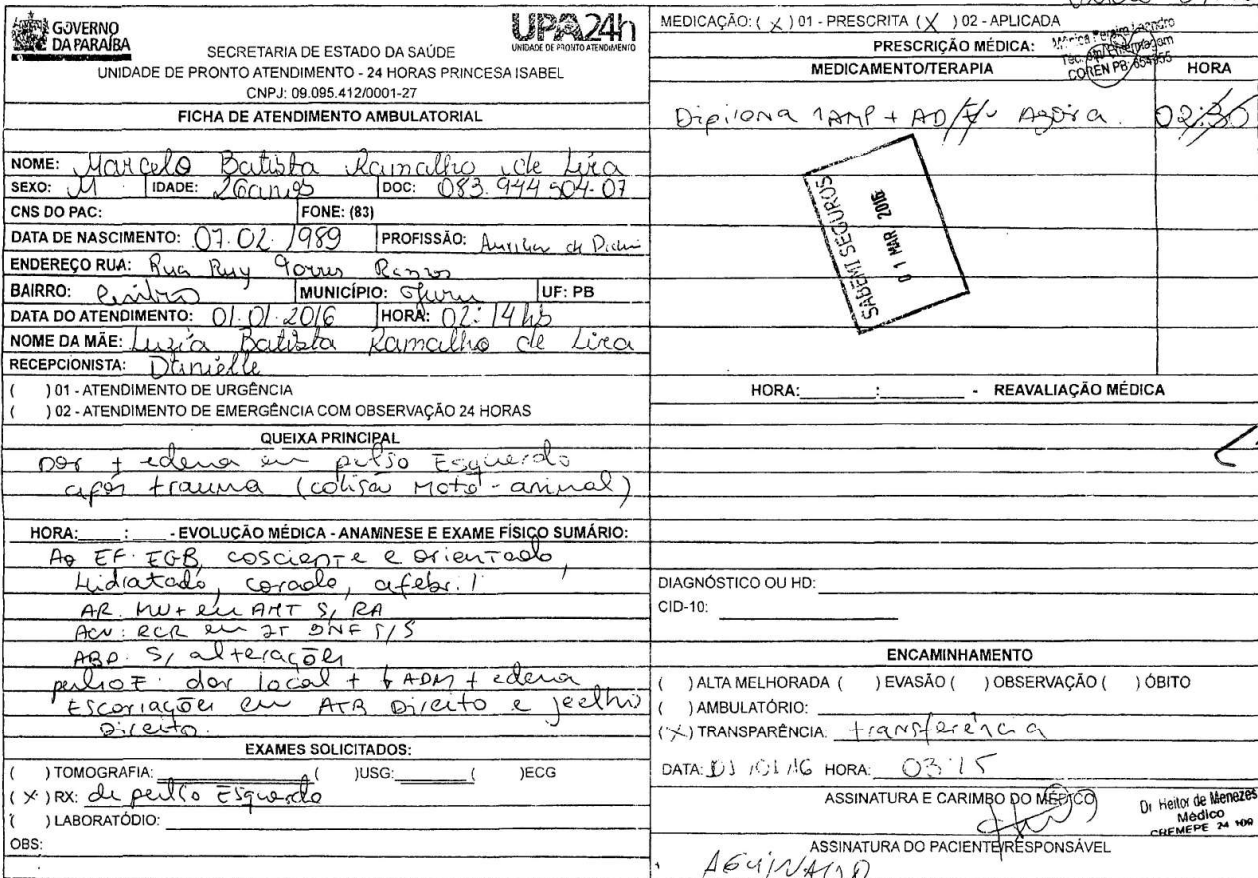 GOVERNO
DA PARAÍBA
UPA24h
UNIDADE DE PRONTO ATENDIMENTO
SECRETARIA DE ESTADO DA SAÚDE
UNIDADE DE PRONTO ATENDIMENTO - 24 HORAS PRINCESA ISABEL
CNPJ: 09.095.412/0001-27
FICHA DE ATENDIMENTO AMBULATORIAL
NOME: Marcelo Batista Ramalho de Lira
SEXO: M IDADE: 26 anos DOC: 083.944504-07
CNS DO PAC: FONE: (83)
DATA DE NASCIMENTO: 07.02.1989 PROFISSÃO: Auxiliar de
ENDEREÇO RUA: Rua Ruy
BAIRRO: MUNICÍPIO: UF: PB
DATA DO ATENDIMENTO: 01.01.2016 HORA: 02:14 hs
NOME DA MÃE: Luzia Batista Ramalho de Lira
RECEPCIONISTA: Danielle
( ) 01 - ATENDIMENTO DE URGÊNCIA
( ) 02 - ATENDIMENTO DE EMERGÊNCIA COM OBSERVAÇÃO 24 HORAS
QUEIXA PRINCIPAL
Dor + edema em pulso Esquerdo
após trauma (colisão Moto - animal)
HORA: : - EVOLUÇÃO MÉDICA - ANAMNESE E EXAME FÍSICO SUMÁRIO:
Ao EF: EGB, cosciente e orientado,
Hidratado, corado, afebril
AR: MV+ em AHT S/ RA
ACV: RCR em 2T BNF S/S
ABD: S/ alterações
pulso E: dor local + ↓ ADM + edema
Escoriações em Direito e joelho
Direito.
EXAMES SOLICITADOS:
( ) TOMOGRAFIA: ( ) USG: ( ) ECG
(X) RX: de pulso Esquerdo
( ) LABORATÓDIO:
OBS:
MEDICAÇÃO: (X) 01 - PRESCRITA (X) 02 - APLICADA
PRESCRIÇÃO MÉDICA:
Mônica Pereira Leandro
Téc. em Enfermagem
COREN PB: 654955
MEDICAMENTO/TERAPIA HORA
Dipirona 1AMP + AD Agora. 02:30
SABEMI SEGUROS
01 MAR 2016
HORA: : - REAVALIAÇÃO MÉDICA
DIAGNÓSTICO OU HD:
CID-10:
ENCAMINHAMENTO
( ) ALTA MELHORADA ( ) EVASÃO ( ) OBSERVAÇÃO ( ) ÓBITO
( ) AMBULATÓRIO:
(X) TRANSPARÊNCIA: transferência
DATA: 01/01/16 HORA: 03:15
ASSINATURA E CARIMBO DO MÉDICO
Dr Heitor de Menezes
Médico
CREMEPE
ASSINATURA DO PACIENTE/RESPONSÁVEL